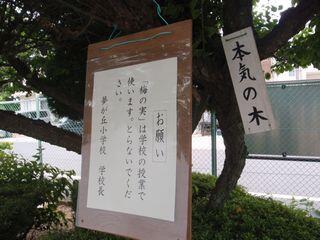 「お願い」
「梅の実」は学校の授業で
使います。とらないでくだ
さい。
夢が丘小学校　学校長
本気の木